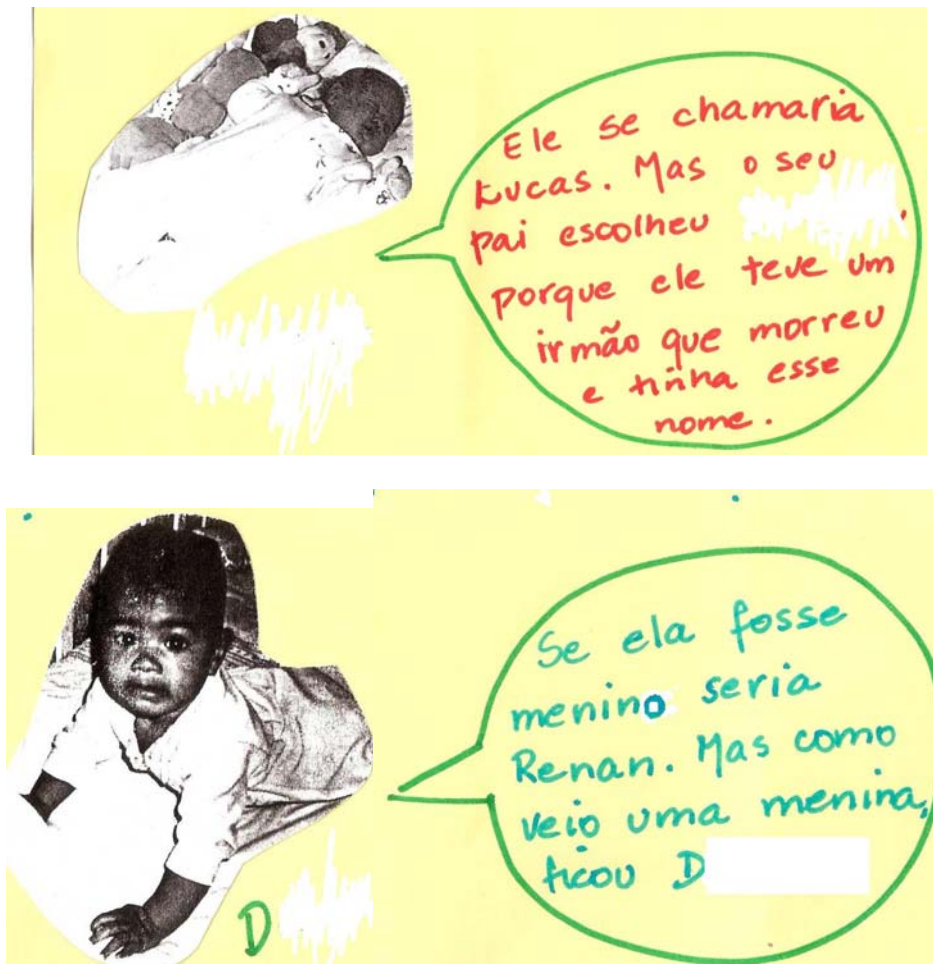 Ele se chamaria
Lucas. Mas o seu
pai escolheu
porque ele teve um
irmão que morreu
e tinha esse
nome.
Se ela fosse
menino seria
Renan. Mas como
veio uma menina,
ficou D
D